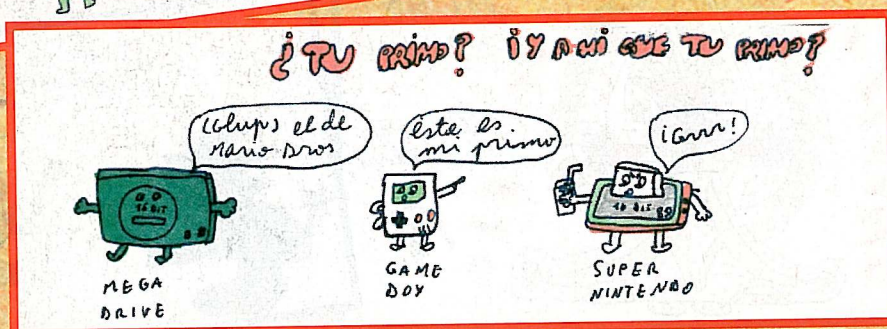 ¿TU PRIMO? ¡Y A MÍ QUE TU PRIMO?
(Glup) el de
Mario Bros
éste es
mi primo
¡Grrr!
16 BIT
16 BIT
MEGA
DRIVE
GAME
BOY
SUPER
NINTENDO